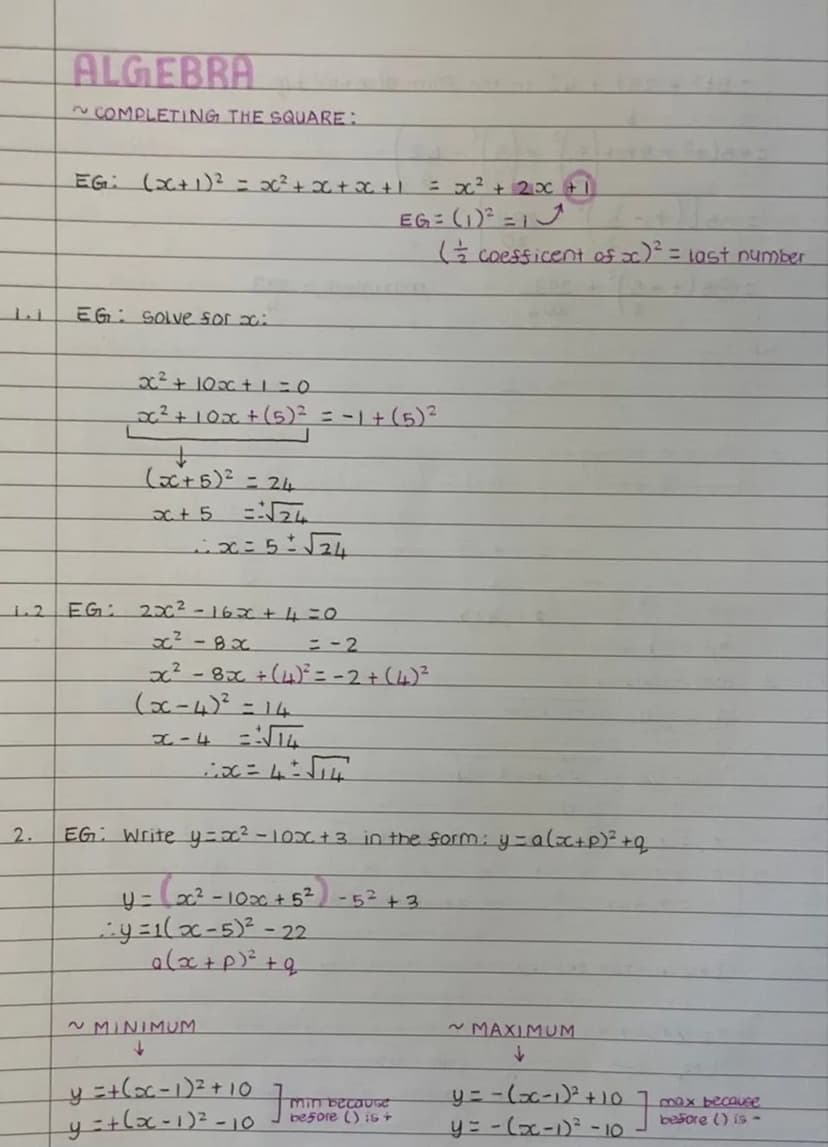 ALGEBRA
~ COMPLETING THE SQUARE:
EG: (x+1)² = x² + x + x + 1 = x² + 2x +1
EG = (1)² = 1
(½ coefficent of x)² = last number
1.1 EG: Solve for x:
x² + 10x + 1 = 0
x² + 10x + (5)² = -1 + (5)²
↓
(x+5)² = 24
x + 5 = ±√24
∴ x = 5 ± √24
1.2 EG: 2x² - 16x + 4 = 0
x² - 8x = -2
x² - 8x + (4)² = -2 + (4)²
(x-4)² = 14
x - 4 = ±√14
∴ x = 4 ± √14
2. EG: Write y = x² - 10x + 3 in the form: y = a(x+p)² + q
y = (x² - 10x + 5²) - 5² + 3
∴ y = 1(x - 5)² - 22
a(x + p)² + q
~ MINIMUM ~ MAXIMUM
↓ ↓
y = +(x-1)² + 10 ] min because y = -(x-1)² + 10 ] max because
y = +(x-1)² - 10 before () is + y = -(x-1)² - 10 before () is -